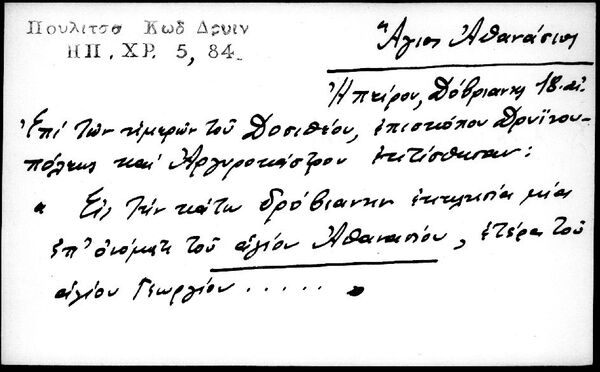 Πουλιτσα Κωδ Δρυιν
ΗΠ. ΧΡ. 5, 84.
Ἅγιος Ἀθανάσιος
Ἠπείρου, Δόβριανη 18. αἰ.
Ἐπί τῶν ἡμερῶν τοῦ Δοσιθέου, ἐπισκόπου Δρυϊνου-
πόλεως καί Ἀργυροκάστρου ἐκτίσθησαν:
" Εἰς τήν κάτω δρόβιανην ἐκκλησία μία
ἐπ' ὀνόματι τοῦ ἁγίου Ἀθανασίου, ἑτέρα τοῦ
ἁγίου Γεωργίου . . . . .